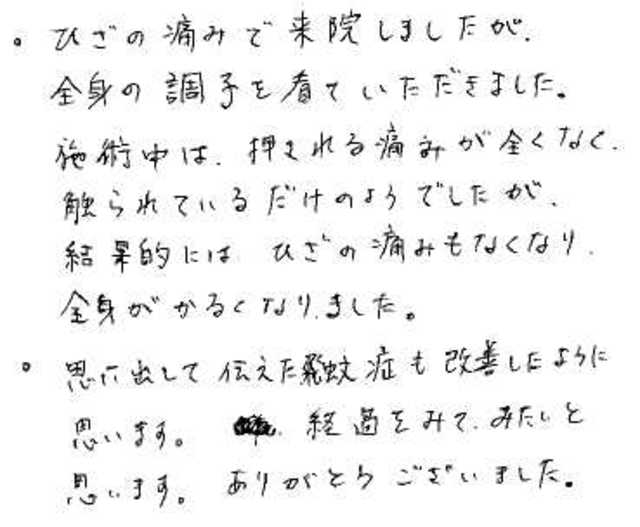 。ひざの痛みで来院しましたが、
全身の調子を看ていただきました。
施術中は、押される痛みが全くなく、
触られているだけのようでしたが、
結果的には ひざの痛みもなくなり、
全身がかるくなりました。
。思い出して伝えた飛蚊症も改善したように
思います。 経過をみて、みたいと
思います。ありがとうございました。